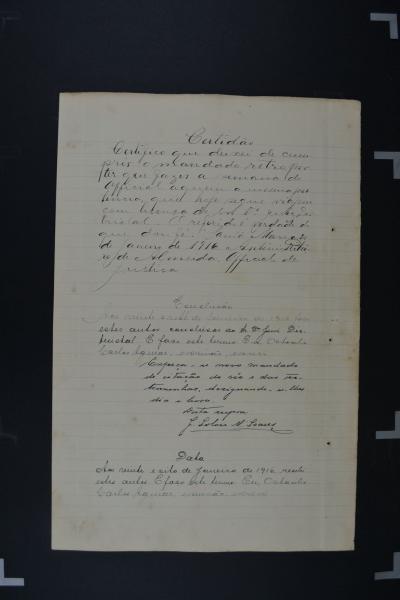 Certidão
Certifico que deixei de cum
pri o mandado retro po
ter que fazer a semana do
Official a quem a mesma per
tence, que hoje segue viagem
com licença do Dr. Juiz Dis
trictal. O referido é verdade do
que dou fé.
de Janeiro de 1916
de Almeida. Official de
Justiça
Conclusão
Aos vinte e oito de Janeiro de 1916 faço
estes autos conclusos ao Dr. Juiz Dis
trictal. E faço este termo. Eu, Octavio
Carlos escrivão, escrevi
Expeça-se novo mandado
de citação do réo e das tes-
temunhas, designando-se-lhes
dia e hora.
Data supra
J. Soares
Data
Aos vinte e oito de Janeiro de 1916, recebi
estes autos. E faço este termo. Eu, Octavio
Carlos escrivão, escrevi